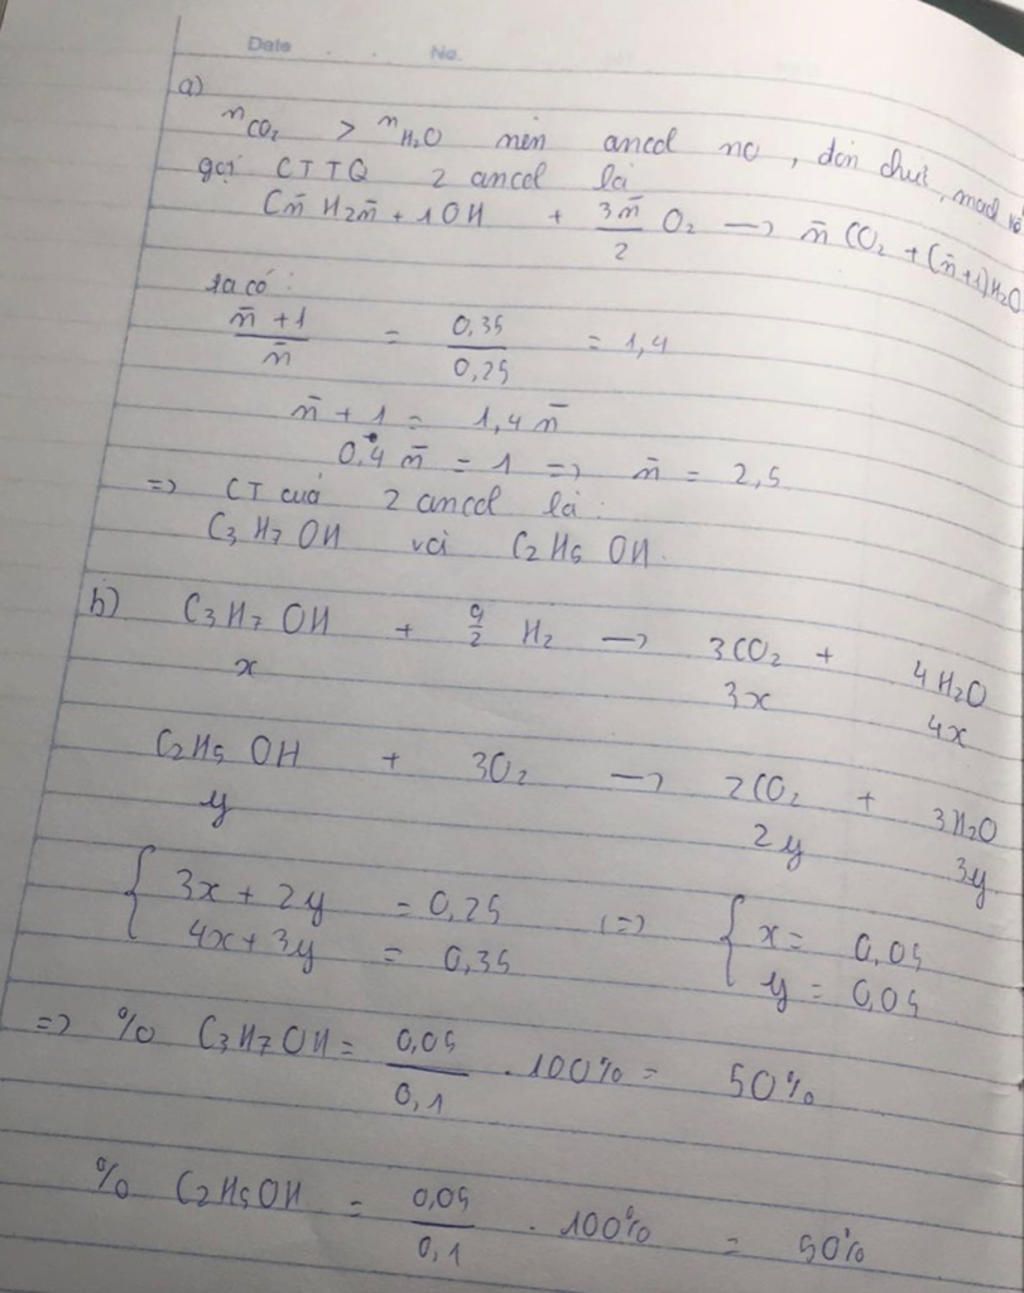 Date . . No.
a)
nCO₂ > nH₂O nên ancol no, đơn chức, mạch hở
gọi CTTQ 2 ancol là
Cn̄H2n̄+1OH + 3n̄/2 O₂ → n̄CO₂ + (n̄+1)H₂O
ta có:
n̄+1/n̄ = 0,35/0,25 = 1,4
n̄ + 1 = 1,4n̄
0,4n̄ = 1 => n̄ = 2,5
=> CT của 2 ancol là:
C₃H₇OH và C₂H₅OH.
b) C₃H₇OH + 9/2 H₂ → 3CO₂ + 4H₂O
x 3x 4x
C₂H₅OH + 3O₂ → 2CO₂ + 3H₂O
y 2y 3y
{ 3x + 2y = 0,25 (=> { x = 0,05
4x + 3y = 0,35 y = 0,05
=> % C₃H₇OH = 0,05/0,1 . 100% = 50%
% C₂H₅OH = 0,05/0,1 . 100% = 50%